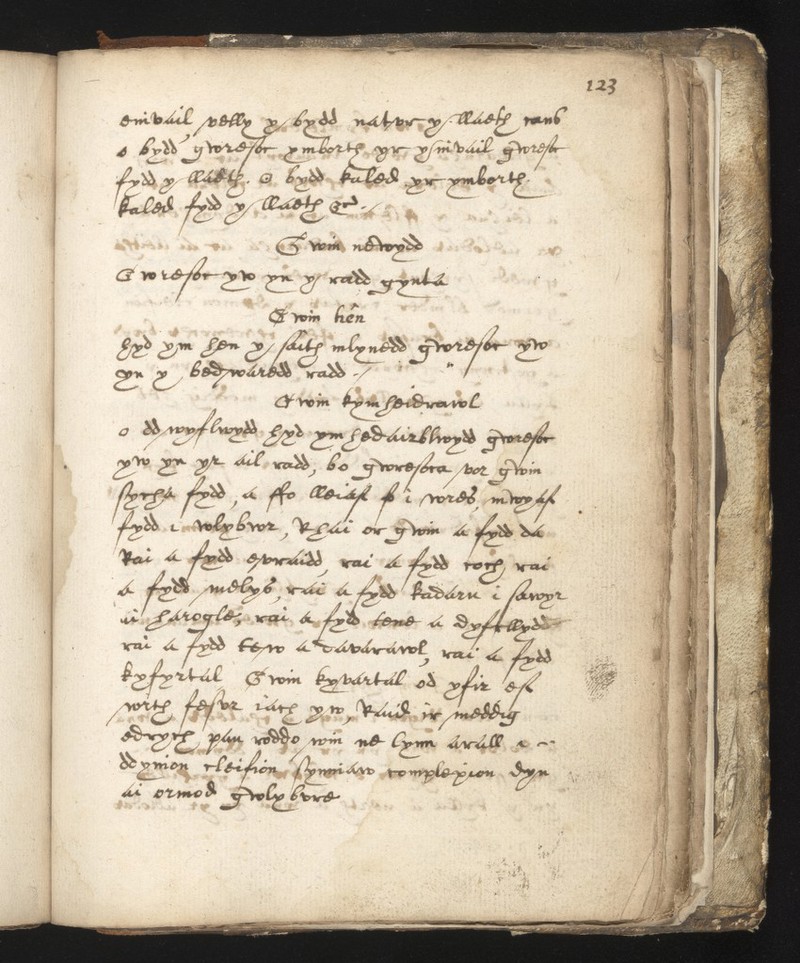 123
einvail, velly y bydd natvr y llaeth cans
o bydd gwresoc ymborth yr ynivail gwresoc
fydd y llaeth. O bydd kaled yr ymborth
kaled fydd y llaeth &c.
Gwin newydd
Gwresoc yw yn y radd gynta
Gwin hên
hyd ym hen y saith mlynedd gwresoc yw
yn y bedwaredd radd
Gwin kymheidrawl
o ddwyflwydd hyd ymhedairblwydd gwresoc
yw yn yr ail radd, bo gwresoca vor gwin
sycha fydd, a ffo lleiaf fo i wres, mwyaf
fydd i wlybwr, Rhai or gwin a fydd da
Rai a fydd evraidd, rai a fydd coch, rai
a fydd melys, rai a fydd kadarn i sawyr
ai harogle, rai a fyd tene a dyfrllydd
rai a fydd tew a davarawl, rai a fydd
kyfyrtal Gwin kyvartal od yfir ef
wrth fesvr iach yw, Raid ir meddig
edrych pan roddo win ne lynn arall i
ddynion cleifion synniaw complexion dyn
ai ormod gwlybvre